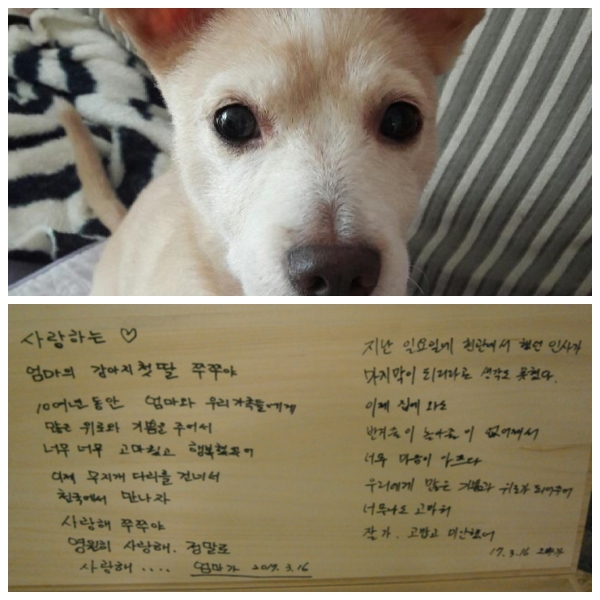 사랑하는 ♡
엄마의 강아지 첫딸 쭈쭈야
10여년 동안 엄마와 우리가족들에게
많은 위로와 기쁨을 주어서
너무 너무 고마웠고 행복했
이제 무지개 다리를 건너서
천국에서 만나자
사랑해 쭈쭈야
영원히 사랑해. 정말로
사랑해 .... 엄마가 2017. 3. 16
지난 일요일에 현관에서 했던 인사가
마지막이 되리라곤 생각도 못했다.
이제 집에 와도
반겨줄이 놀아줄 이 없어져서
너무 마음이 아프다
우리에게 많은 기쁨과 위로가 되어주어
너무나도 고마워
잘 가. 고맙고 미안했어
17. 3. 16 오빠가